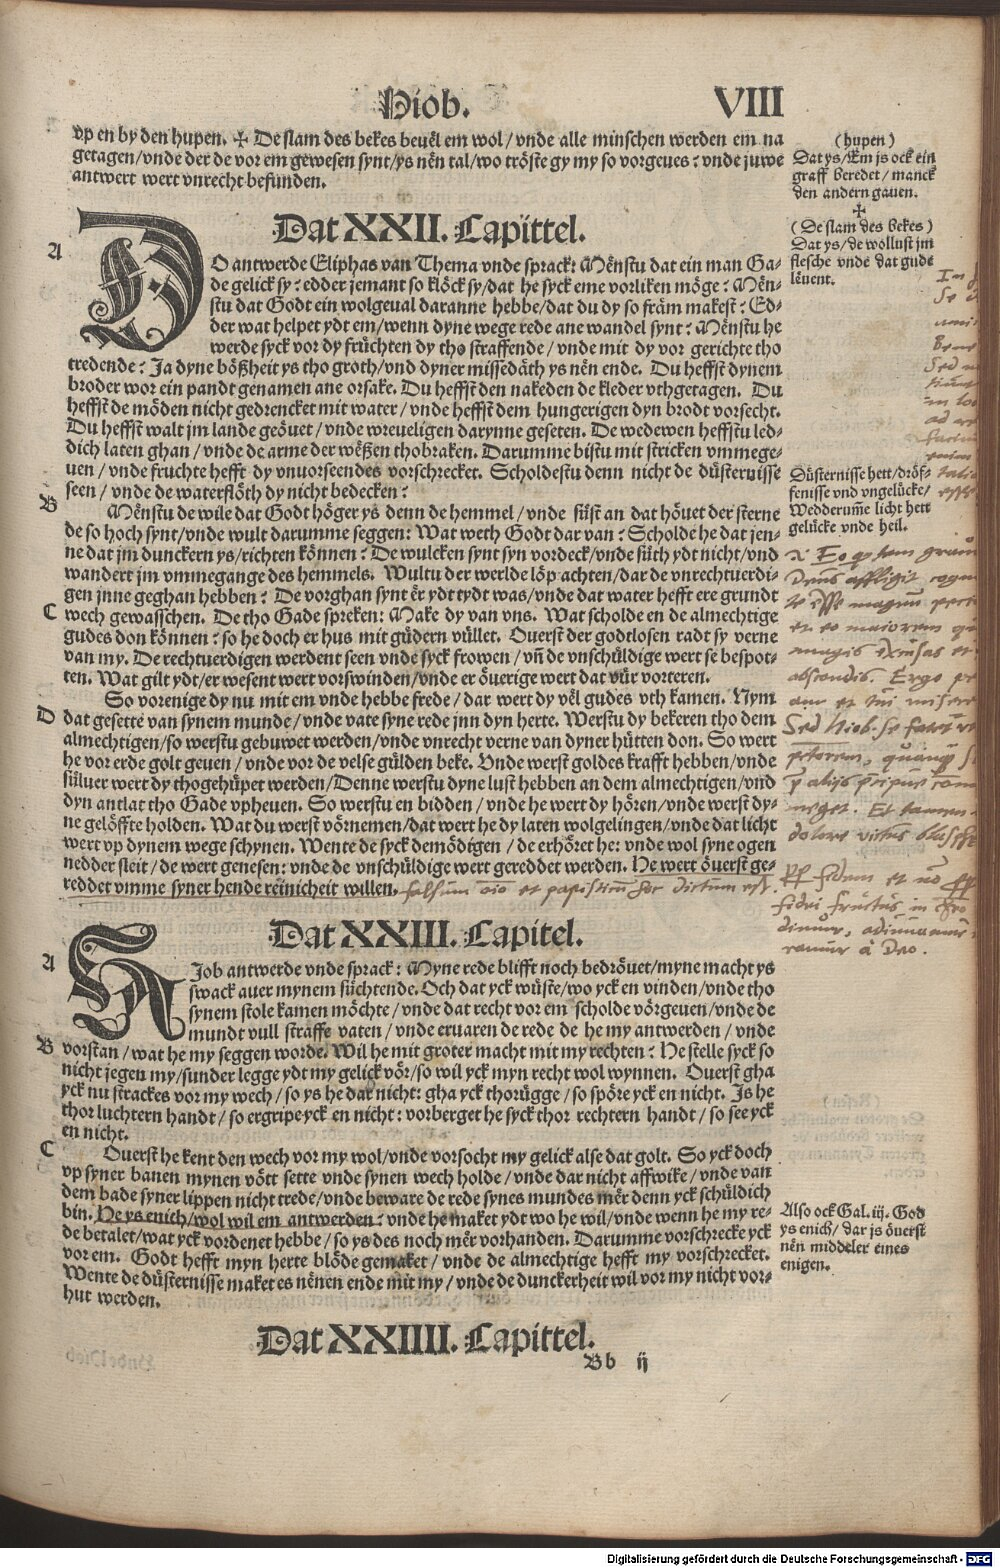 Hiob. VIII
vp en by den hupen. ✠ De slam des bekes beuël em wol / vnde alle minschen werden em na
getagen / vnde der de vor em gewesen synt / ys nën tal / wo tröste gy my so vorgeues? vnde juwe
antwert wert vnrecht befunden.
(hupen)
Dat ys / Em js ock ein
graff beredet / manck
den andern gauen.
✠
(De slam des bekes)
Dat ys / de wollust jm
flesche vnde dat gude
lëuent.
Dat XXII. Capittel.
A
DO antwerde Eliphas van Thema vnde sprack: Mënstu dat ein man Ga-
de gelick sy? edder jemant so klöck sy / dat he syck eme vorliken möge? Mën-
stu dat Godt ein wolgeual daranne hebbe / dat du dy so främ makest? Ed-
der wat helpet ydt em / wenn dyne wege rede ane wandel synt? Mënstu he
werde syck vor dy früchten dy tho straffende / vnde mit dy vor gerichte tho
tredende? Ja dyne bößheit ys tho groth / vnd dyner missedäth ys nën ende. Du heffst dynem
broder wor ein pandt genamen ane orsake. Du heffst den nakeden de kleder vthgetagen. Du
heffst de möden nicht gedrencket mit water / vnde heffst dem hungerigen dyn brodt vorsecht.
Du heffst walt jm lande geöuet / vnde wreueligen darynne geseten. De wedewen heffstu led-
dich laten ghan / vnde de arme der wëßen thobraken. Darumme bistu mit stricken vmmege-
uen / vnde fruchte hefft dy vnuorseendes vorschrecket. Scholdestu denn nicht de düsternisse
seen / vnde de waterflöth dy nicht bedecken?
Düsternisse hett / dröf-
fenisse vnd vngelücke /
Wedderum̃e licht hett
gelücke vnde heil.
B
Mënstu de wile dat Godt höger ys denn de hemmel / vnde süst an dat höuet der sterne
de so hoch synt / vnde wult darumme seggen: Wat weth Godt dar van? Scholde he dat jen-
ne dat jm dunckern ys / richten können? De wulcken synt syn vordeck / vnde süth ydt nicht / vnd
wandert jm vmmegange des hemmels. Wultu der werlde löp achten / dar de vnrechtuerdi-
gen jnne geghan hebben? De vorghan synt ër ydt tydt was / vnde dat water hefft ere grundt
C
wech gewasschen. De tho Gade spreken: Make dy van vns. Wat scholde en de almechtige
gudes don können? so he doch er hus mit güdern vüllet. Ouerst der godtlosen radt sy verne
van my. De rechtuerdigen werdent seen vnde syck frowen / vn̄ de vnschüldige wert se bespot-
ten. Wat gilt ydt / er wesent wert vorswinden / vnde er öuerige wert dat vür vorteren.
So vorenige dy nu mit em vnde hebbe frede / dar wert dy vël gudes vth kamen. Nym
D
dat gesette van synem munde / vnde vate syne rede jnn dyn herte. Werstu dy bekeren tho dem
almechtigen / so werstu gebuwet werden / vnde vnrecht verne van dyner hütten don. So wert
he vor erde golt geuen / vnde vor de velse gülden beke. Vnde werst goldes krafft hebben / vnde
süluer wert dy thogehüpet werden / Denne werstu dyne lust hebben an dem almechtigen / vnd
dyn antlat tho Gade vpheuen. So werstu en bidden / vnde he wert dy hören / vnde werst dy-
ne gelöffte holden. Wat du werst vörnemen / dat wert he dy laten wolgelingen / vnde dat licht
wert vp dynem wege schynen. Wente de syck demödtigen / de erhöret he: vnde wol syne ogen
nedder sleit / de wert genesen: vnde de vnschüldige wert gereddet werden. He wert öuerst ge-
reddet vmme syner hende reinicheit willen. falsum et papisticum dictum est.
Deus affligit
magis
Ergo
Sed Hiob. se
Et tamen
fidem et
fidei fructus in
a Deo.
Dat XXIII. Capitel.
A
HIob antwerde vnde sprack: Myne rede blifft noch bedröuet / myne macht ys
swack auer mynem süchtende. Och dat yck wüste / wo yck en vinden / vnde tho
synem stole kamen möchte / vnde dat recht vor em scholde vörgeuen / vnde de
mundt vull straffe vaten / vnde eruaren de rede de he my antwerden / vnde
B
vorstan / wat he my seggen worde. Wil he mit groter macht mit my rechten? He stelle syck so
nicht jegen my / sunder legge ydt my gelick vör / so wil yck myn recht wol wynnen. Ouerst gha
yck nu strackes vor my wech / so ys he dar nicht: gha yck thorügge / so spöre yck en nicht. Js he
thor luchtern handt / so ergripe yck en nicht: vorberget he syck thor rechtern handt / so see yck
en nicht.
C
Ouerst he kent den wech vor my wol / vnde vorsocht my gelick alse dat golt. So yck doch
vp syner banen mynen vött sette vnde synen wech holde / vnde dar nicht affwike / vnde van
dem bade syner lippen nicht trede / vnde beware de rede synes mundes mër denn yck schüldich
bin. He ys enich / wol wil em antwerden? vnde he maket ydt wo he wil / vnde wenn he my re-
de betalet / wat yck vordenet hebbe / so ys des noch mër vorhanden. Darumme vorschrecke yck
vor em. Godt hefft myn herte blöde gemaket / vnde de almechtige hefft my vorschrecket.
Wente de düsternisse maket es nënen ende mit my / vnde de dunckerheit wil vor my nicht vor-
hut werden.
Also ock Gal. iij. God
ys enich / dar js öuerst
nën middeler eines
enigen.
Dat XXIIII. Capittel.
Bb ij
Digitalisierung gefördert durch die Deutsche Forschungsgemeinschaft - DFG